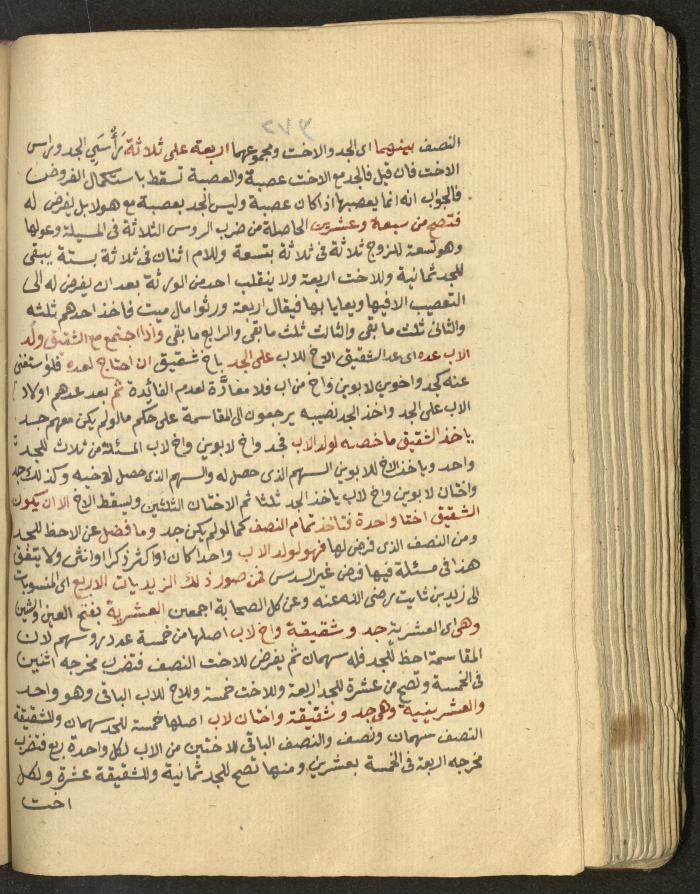 النصف بينهما اى الجد والاخت ومجموعهما اربعة على ثلاثة براسى الجد وبراس
الاخت فان قيل فالجد مع الاخت عصبة والعصبة تسقط باستكمال الفروض
فالجواب انه انما يعصبها اذا كان عصبة وليس الجد بعصبة مع هولا بل يفرض له
فتصح من سبعة وعشرين الحاصلة من ضرب الروس الثلاثة فى المسيلة وعولها
وهو تسعة للزوج ثلاثة فى ثلاثة بتسعة وللام اثنان فى ثلاثة بستة يبقى
للجد ثمانية وللاخت اربعة ولا ينقلب احد من الورثة بعد ان يفرض له الى
التعصيب الا فيها ويعايا بها فيقال اربعة ورثوا مال ميت فاخذ احدهم ثلثه
والثانى ثلث ما بقى والثالث ثلث ما بقى والرابع ما بقى واذا اجتمع مع الشقيق ولد
الاب عده اى عد الشقيق الاخ للاب على الجد باخ شقيق ان احتاج لعده فلو استغنى
عنه كجد واخوين لابوين واخ من اب فلا معادَّة لعدم الفائدة ثم بعد عدهم اولاد
الاب على الجد واخذ الجد نصيبه يرجعون الى المقاسمة على حكم ما لو لم يكن معهم جد
ياخذ الشقيق ما خصه لولد الاب فجد واخ لابوين واخ لاب المسئلة من ثلاث للجد
واحد وياخذ الاخ للابوين السهم الذى حصل له والسهم الذى حصل لاخيه وكذلك جد
واختان لابوين واخ لاب ياخذ الجد ثلثا ثم الاختان الثلثين ويسقط الاخ الا ان يكون
الشقيق اختا واحدة فتاخذ تمام النصف كما لو لم يكن جد وما فضل عن الاحظ للجد
ومن النصف الذى فرض لها فهو لولد الاب واحدا كان او اكثر ذكرا او انثى ولا يتفق
هذا فى مسئلة فيها فرض غير السدس فمن صور ذلك الزيديات الاربع اى المنسوبات
الى زيد بن ثابت رضى الله عنه وعن كل الصحابة اجمعين العشرية بفتح العين والشين
وهى اى العشرية جد وشقيقة واخ لاب اصلها من خمسة عدد روسهم لان
المقاسمة احظ للجد فله سهمان ثم يفرض للاخت النصف فتضرب مخرجه اثنين
فى الخمسة وتصح من عشرة للجد اربعة وللاخت خمسة وللاخ للاب الباقى وهو واحد
والعشرينية وهى جد وشقيقة واختان لاب اصلها خمسة للجد سهمان وللشقيقة
النصف سهمان ونصف والنصف الباقى للاختين من الاب لكل واحدة ربع فتضرب
مخرجه اربعة فى الخمسة بعشرين ومنها تصح للجد ثمانية وللشقيقة عشرة ولكل
اخت